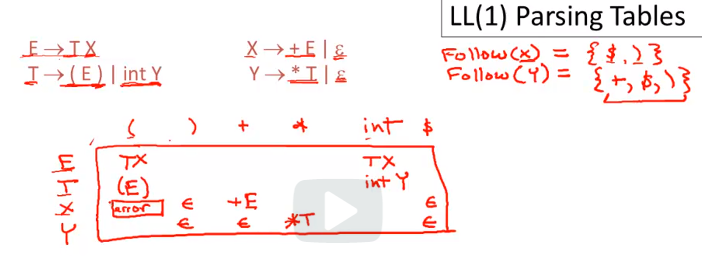 LL(1) Parsing Tables
E → T X
X → + E | ε
T → ( E ) | int Y
Y → * T | ε
Follow(X) = { $, ) }
Follow(Y) = { +, $, ) }
( ) + * int $
E TX TX
T (E) int Y
X error ε +E ε
Y ε ε *T ε